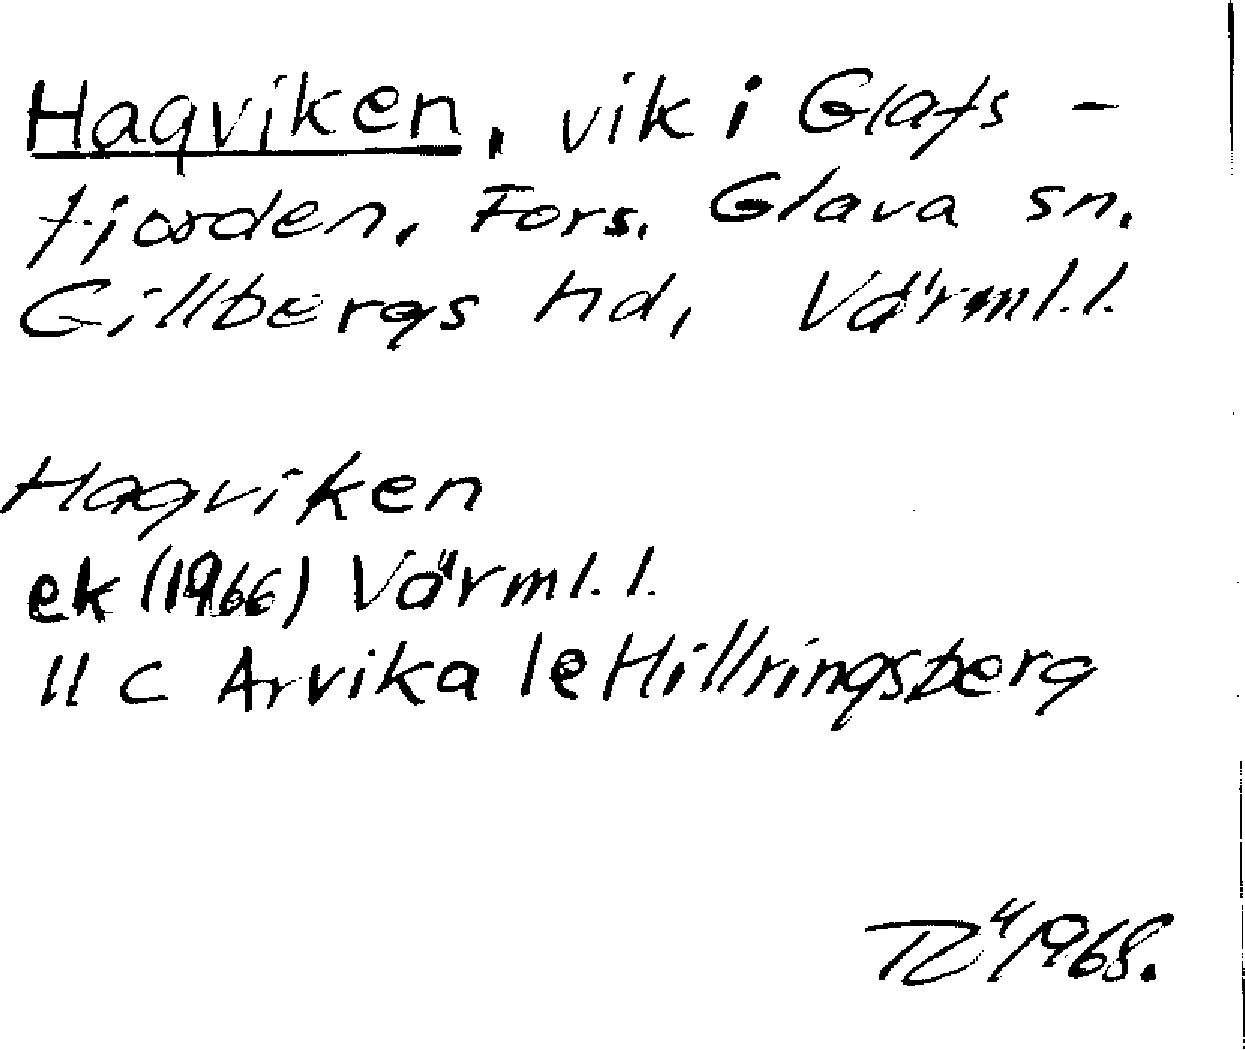 Hagviken, vik i Glafs-
fjorden, Fors. Glava sn.
Gillbergs hd, Värml.l.
Hagviken
ek (1966) Värml.l.
11 C Arvika 1e Hillringsberg
1968.